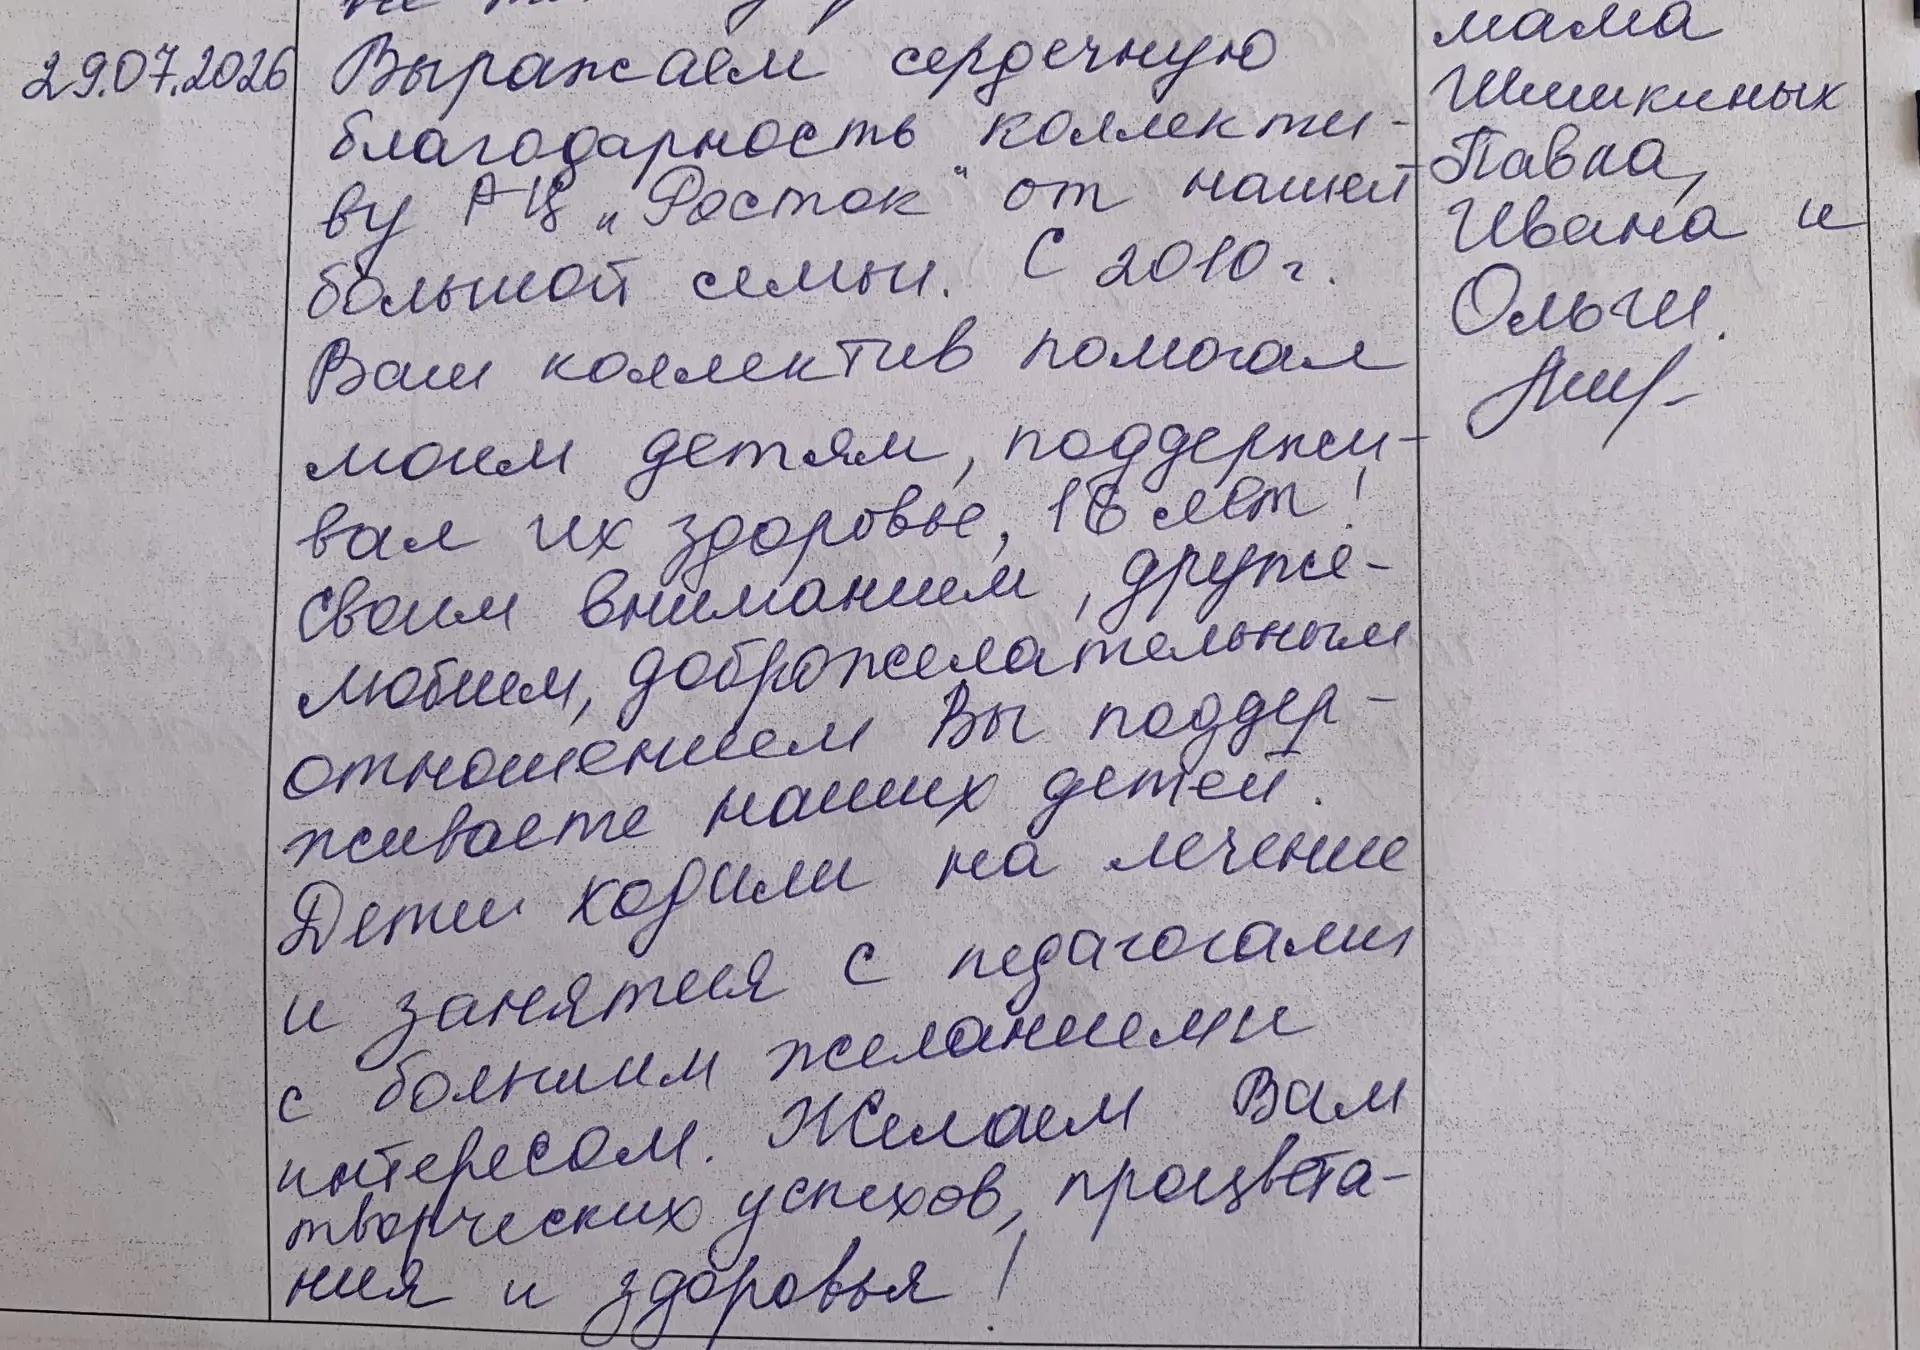 29.07.2026
Выражаем сердечную
благодарность коллекти-
ву АЦ "Росток" от нашей
большой семьи. С 2010 г.
Ваш коллектив помогал
моим детям, поддержи-
вал их здоровье, 16 лет!
Своим вниманием, друже-
любием, доброжелательным
отношением Вы поддер-
живаете наших детей.
Дети ходили на лечение
и занятия с педагогами
с большим желанием и
интересом. Желаем Вам
творческих успехов, процвета-
ния и здоровья!
мама
Шишкиных
Павла,
Ивана и
Ольги.